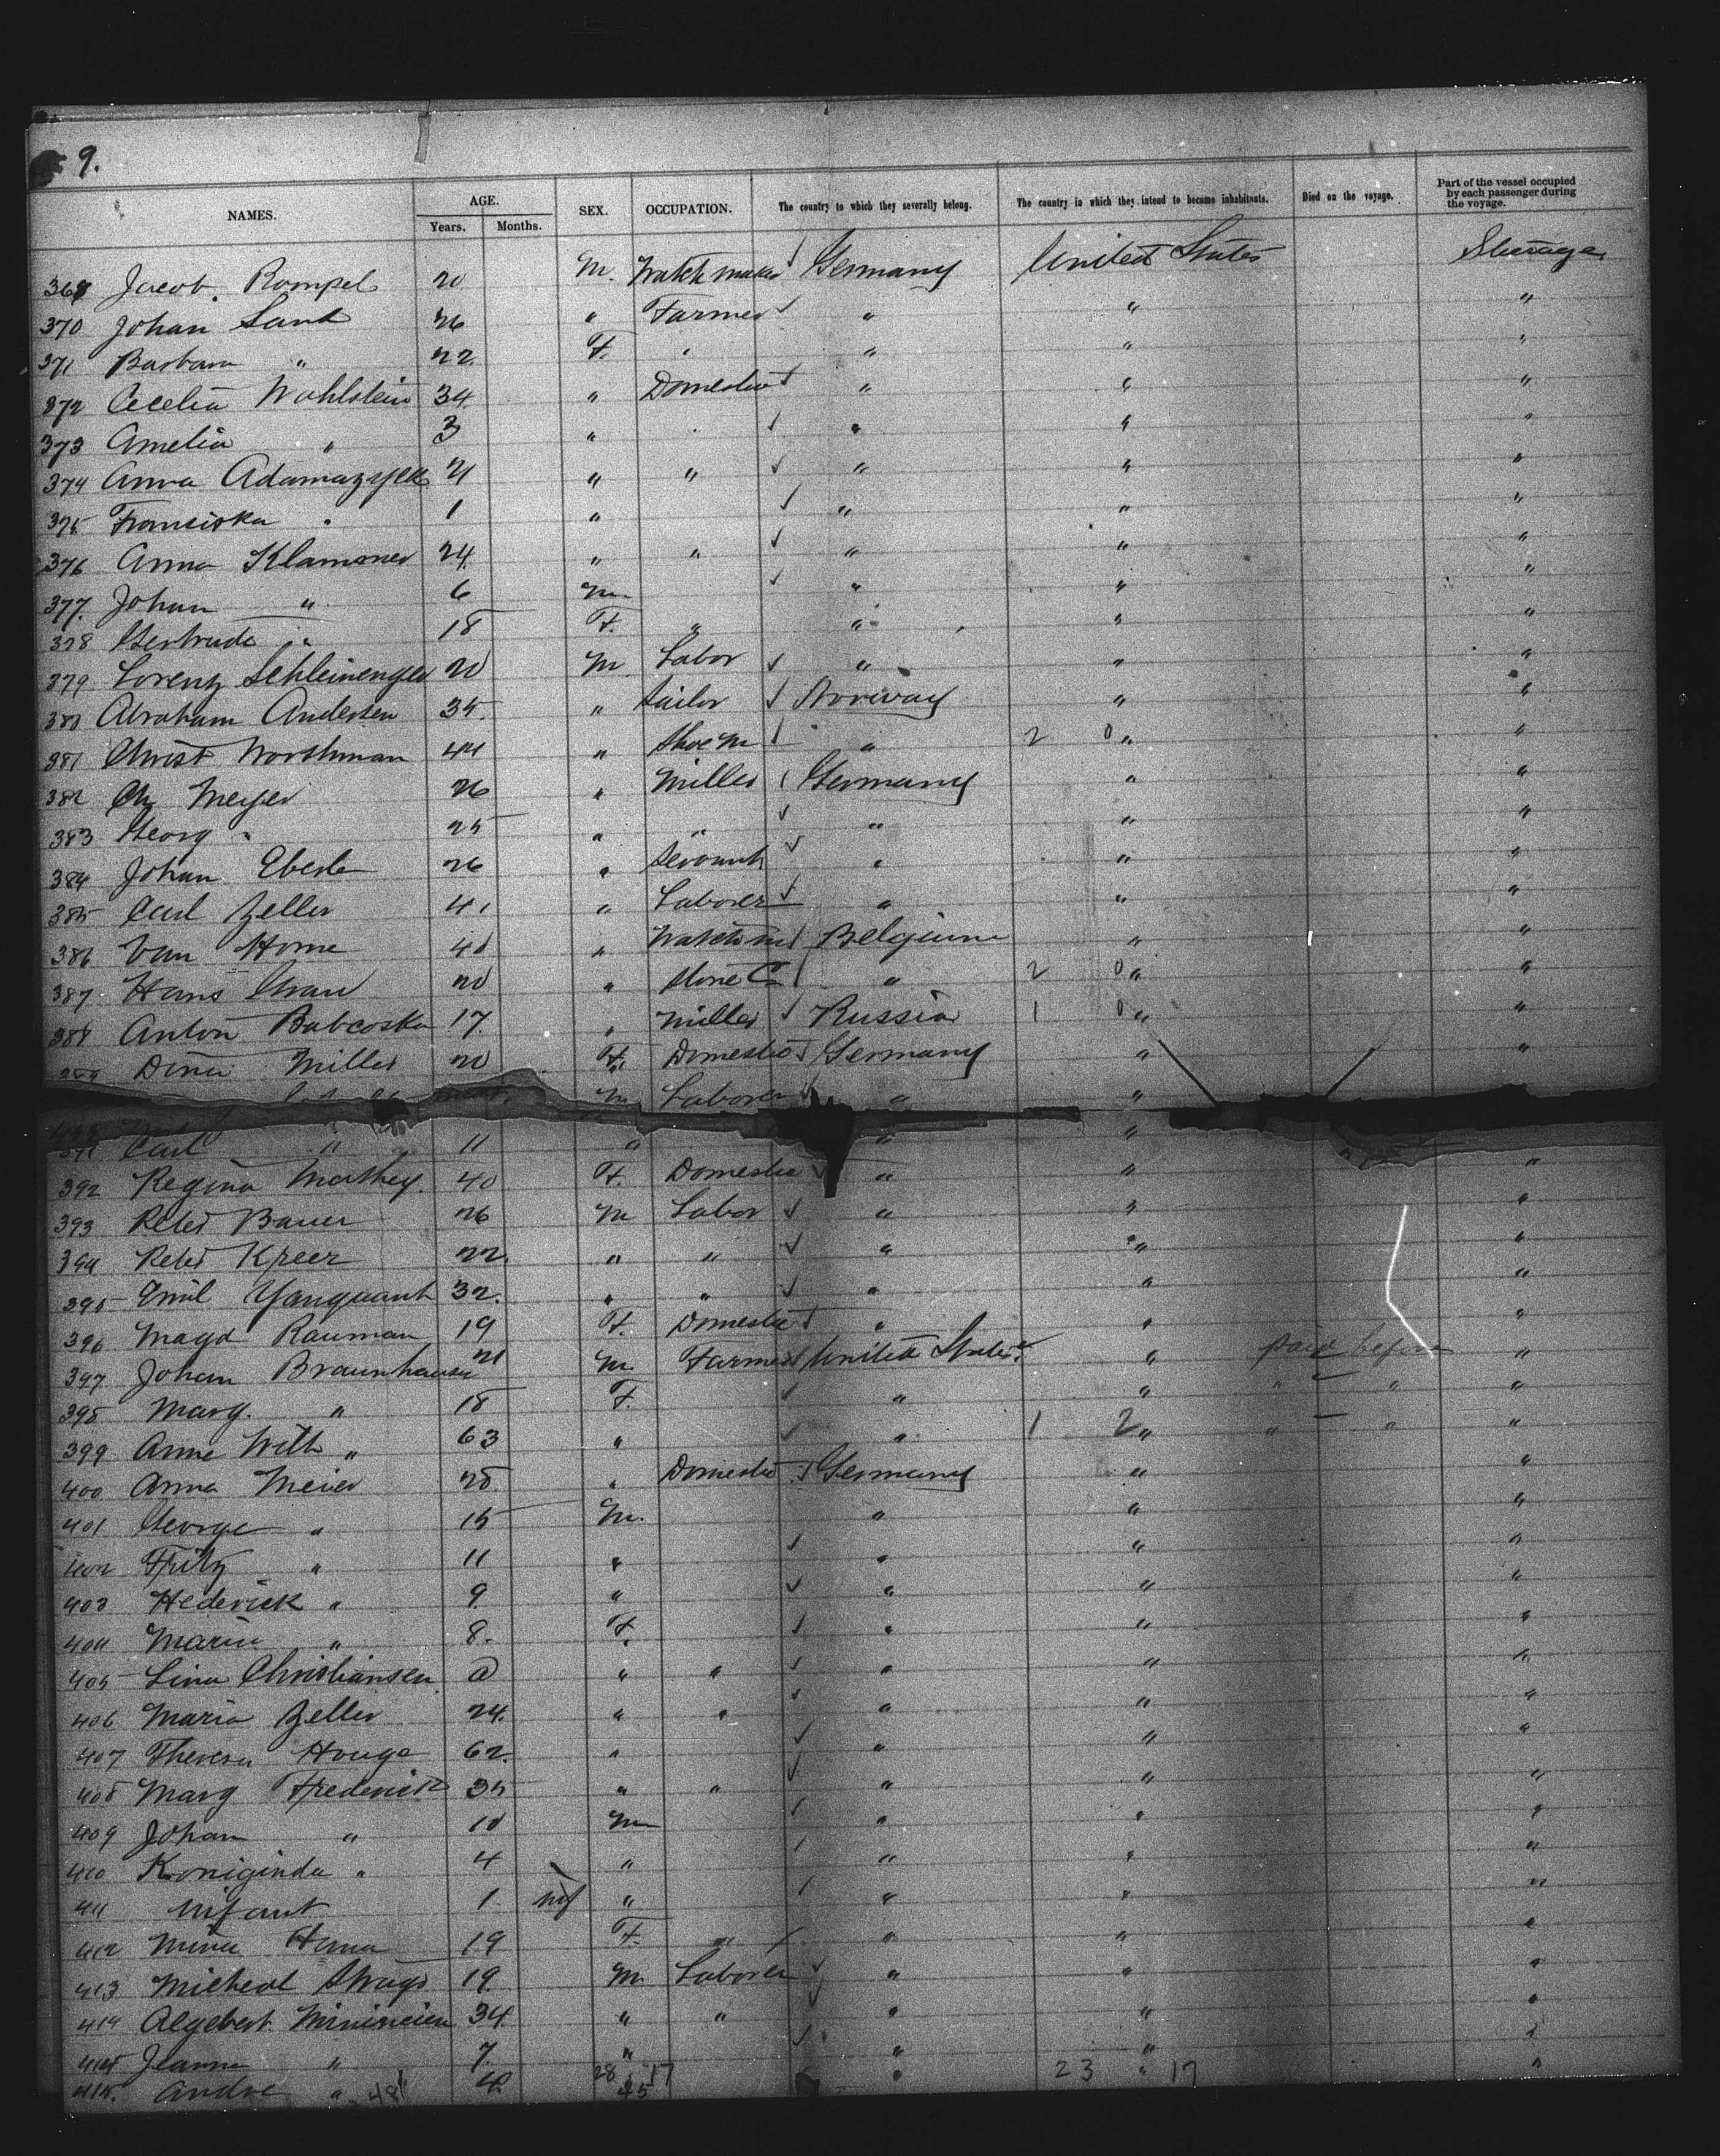 9.
NAMES. AGE. Years. Months. SEX. OCCUPATION. The country to which they severally belong. The country in which they intend to become inhabitants. Died on the voyage. Part of the vessel occupied by each passenger during the voyage.
Jacob Rompel 20 M. Watchmaker Germany United States Steerage
370 Johan Sand 26 " Farmer " " "
371 Barbara " 22 F. " " " "
372 Cecelia Wohlstein 34 " Domestic " " "
373 Amelia " 3 " " " "
374 Anna 21 " " " " "
375 Franciska " 1 " " " "
376 Anna Klammer 24 " " " " "
377 Johan " 6 M " " "
378 Gertrude " 18 F. " " " "
379 Lorenz 20 M Labor " " "
380 Abraham Andersen 35 " Sailor Norway " "
381 Christ Worthman 44 " Shoe M " 2 0 " "
382 Ch Meyer 26 " Miller Germany " "
383 Georg " 25 " " " " "
384 Johan Eberle 26 " Servant " " "
385 Carl Zeller 41 " Laborer " " "
386 Van Horne 40 " Watch m Belgium " "
387 Hans 20 " Stone C " 2 0 " "
388 Anton Babcoska 17 " Miller Russia 1 0 " "
Miller 20 F. Domestic Germany " "
M Laborer " "
391 Carl " 11 " " "
392 Regina Mathey 40 F. Domestic " " "
393 Peter Bauer 26 M Labor " " "
394 Peter Kreer 22 " " " " "
395 Emil 32 " " " " "
396 Magd Rauman 19 F. Domestic " " "
397 Johan Braunhauser 21 M Farmer United States " paid before "
398 Marg. " 18 F. " " " " "
399 Anne With " 63 " " 1 2 " " " "
400 Anna Meier 28 " Domestic Germany " "
401 George " 15 M. " " "
402 Fritz " 11 " " " "
403 Hederick " 9 " " " "
404 Maria " 8 F. " " "
405 Lina Christiansen " " " " "
406 Maria Zeller 24 " " " " "
407 Theresa Houga 62 " " " "
408 Marg Frederick 35 " " " " "
409 Johan " 10 M " " "
410 Koniginda " 4 " " " "
411 Infant 1 inf " " " "
412 Mina 19 F. " " " "
413 Micheal 19 M. Laborer " " "
414 34 " " " " "
Jeanne " 7 " " " "
415. Andre " " " "
28 17 23 17
45